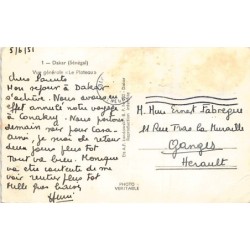 5/6/51
1 - Dakar (Sénégal)
Vue générale «Le Plateau»
Chers Parents
Mon séjour à Dakar
s'achève. Nous avons en
effet annulé notre voyage à
Conakry. Nous partons
demain soir pour Casa-
ainsi je mois de retour
deux jours plus tôt
Tout va bien. Monique
va être contente de me
voir rentrer plus tôt
Mille gros baisers
Henri
M. Mme Ernest Fabrègue
11 Rue Fras la Muraille
Ganges
Hérault
PHOTO
VÉRITABLE